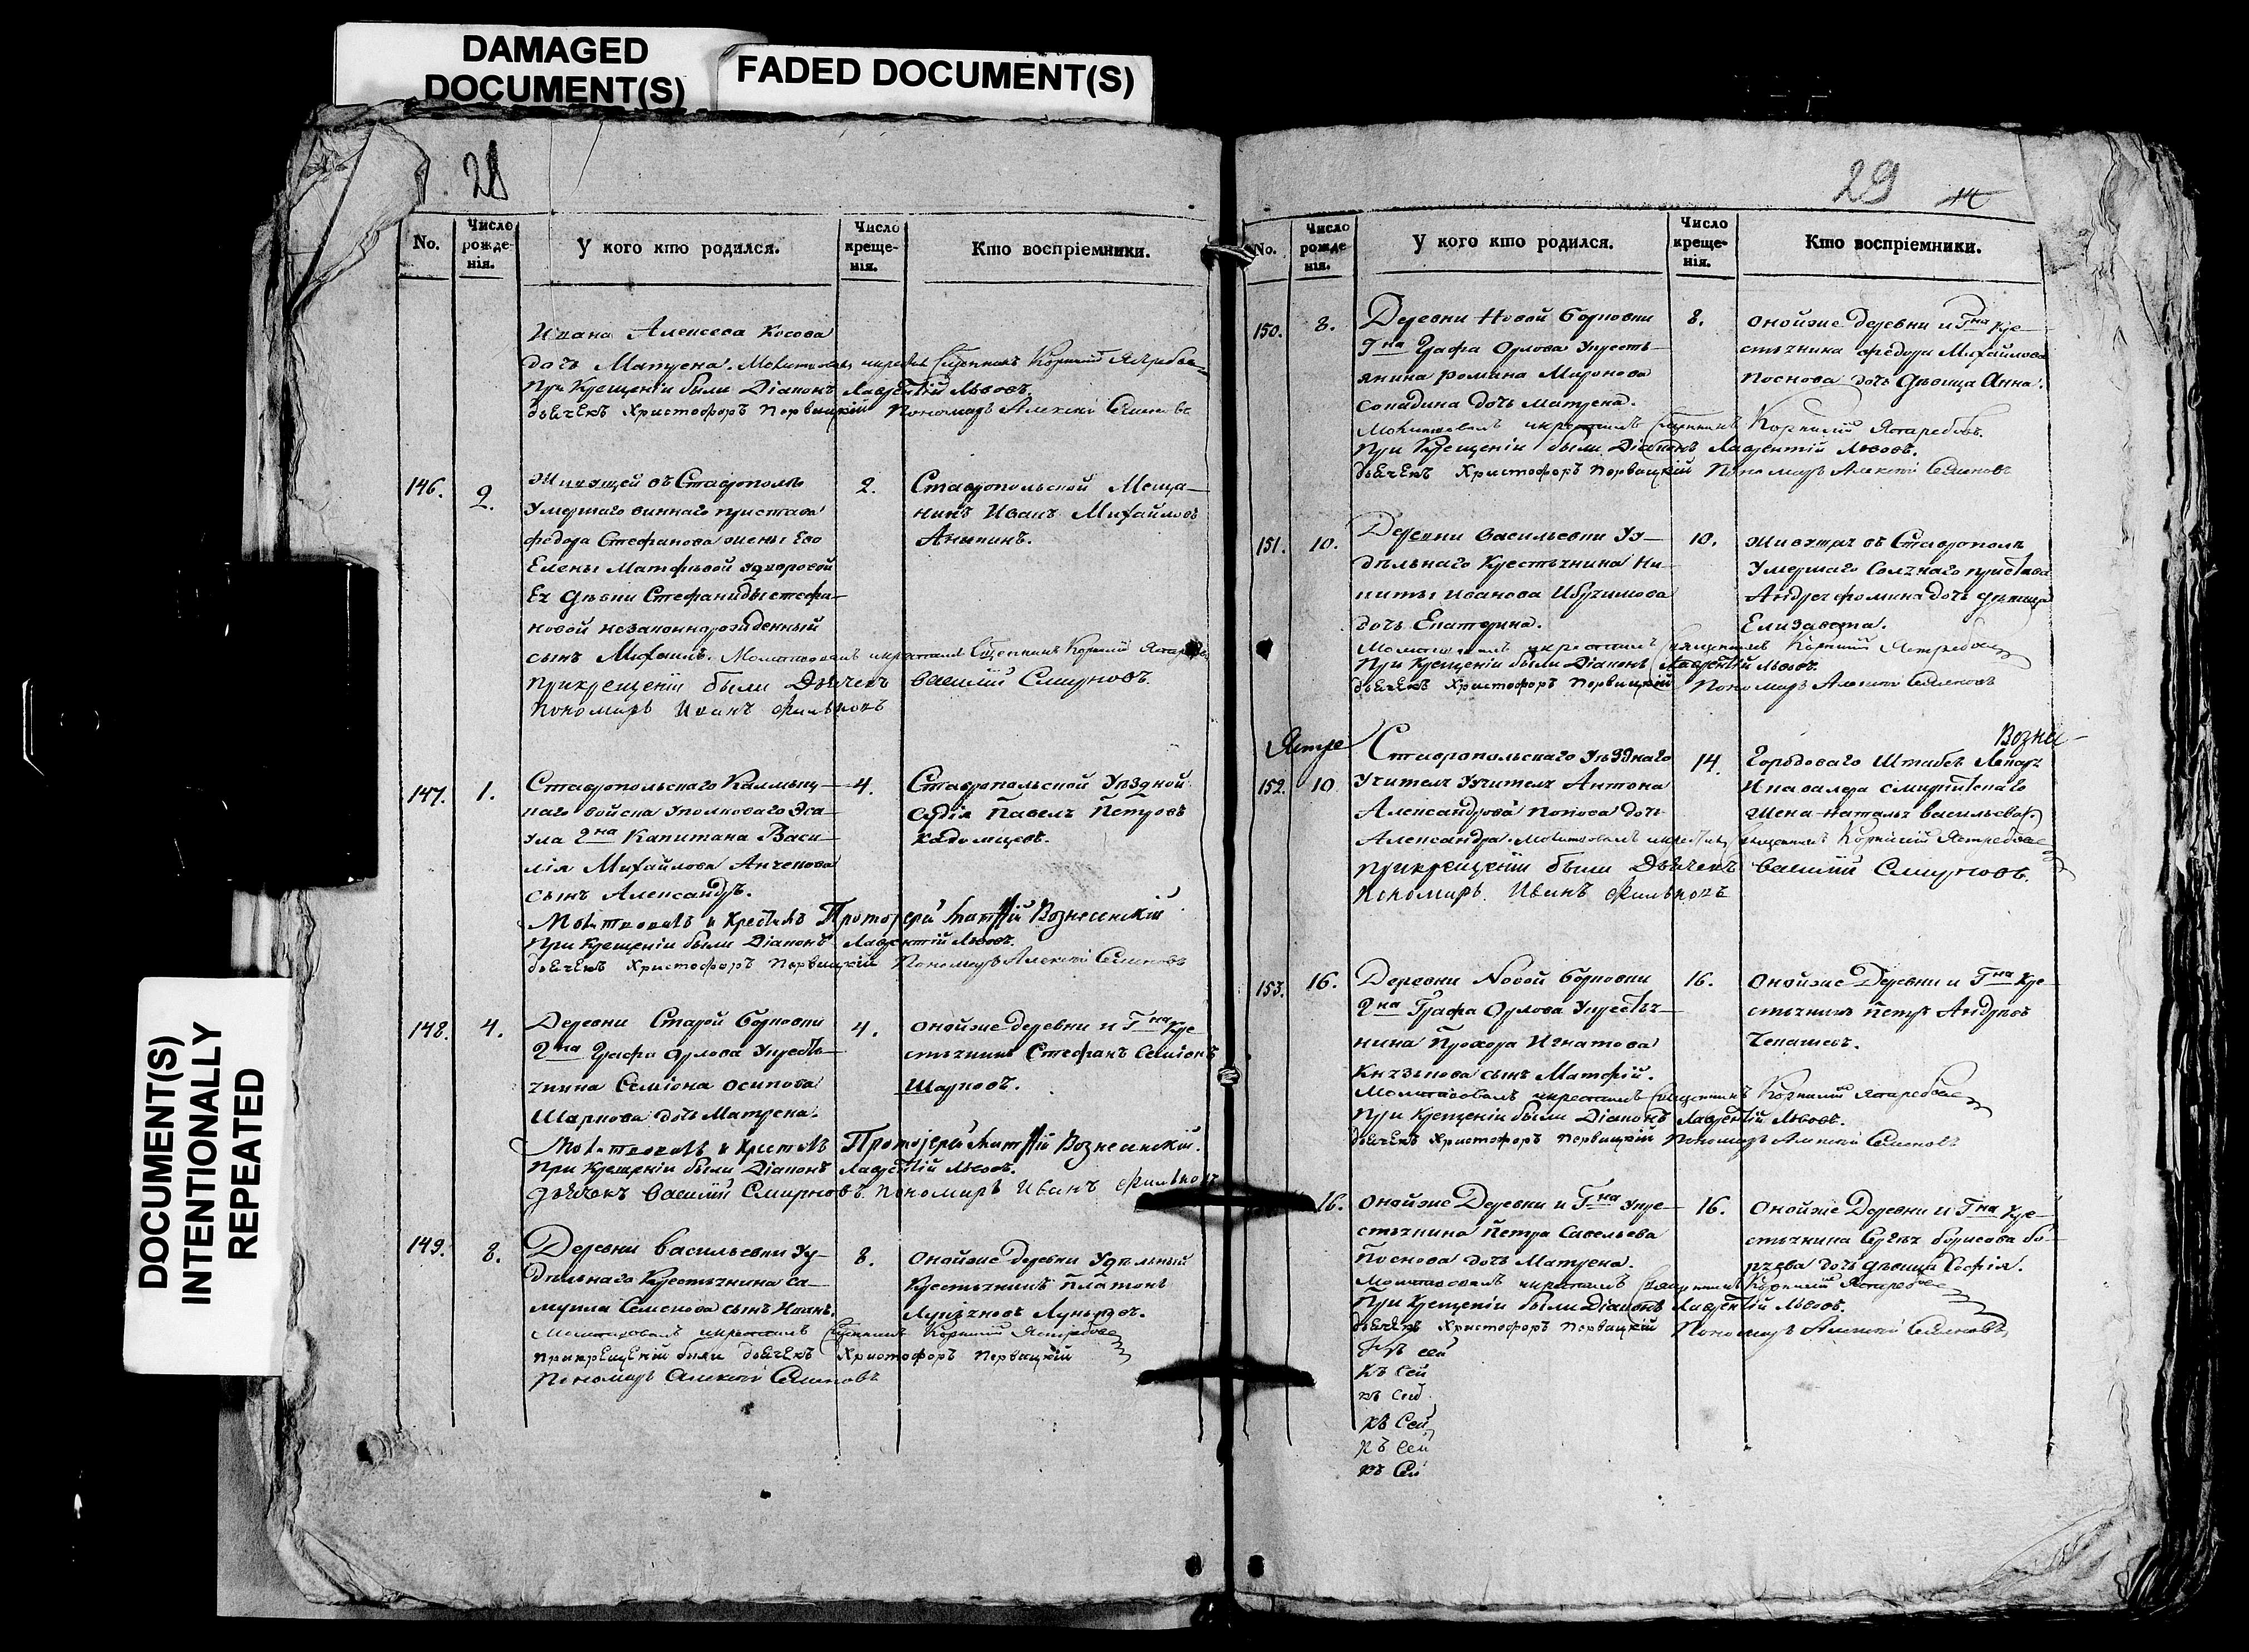 DAMAGED
DOCUMENT(S)
FADED DOCUMENT(S)
DOCUMENT(S)
INTENTIONALLY
REPEATED
28
No.
Число рожде-нія.
У кого кто родился.
Число креще-нія.
Кто воспріемники.
Ивана Алексеева Косова
дочь Матрена. Молитвовалъ и крестилъ Священникъ Корнилий Ястребовъ
При Крещеніи были Діаконъ Лаврентій Львовъ.
дьячекъ Христофоръ Первицкій Пономарь Алексей Семеновъ
146. 2.
Живущей въ Ставрополѣ
Умершаго виннаго пристава
федора Стефанова жены Его
Елены Матфѣвой
Ея Дѣвки Стефаниды стефа-
новой незаконнорожденный
сынъ Михаилъ. Молитвовалъ и крестилъ Священникъ Корнилий Ястребовъ
При крещеніи были Дьячекъ Василий Смирновъ
Пономарь Иванъ
2.
Ставропольской Меща-
нинъ Иванъ Михайловъ
Аникинъ.
147. 1.
Ставропольскаго Калмыц-
каго войска Уполковаго Эса-
ула Гна Капитана Васи-
лія Михайлова Анченова
сынъ Александръ.
Молитвовалъ и Крестилъ Протоіерей Матфій Вознесенскій
При Крещеніи были Діаконъ Лаврентій Львовъ.
дьячекъ Христофоръ Первицкій Пономарь Алексей Семеновъ
4.
Ставропольской Уѣздной
Судія Павелъ Петровъ
Кадомцевъ.
148. 4.
Деревни Старой Борковки
Гна Графа Орлова Укресть-
янина Семіона осипова
Шаркова дочь Матрена.
Молитвовалъ и Крестилъ Протоіерей Матфій Вознесенскій.
При Крещеніи были Діаконъ Лаврентій Львовъ.
Дьячокъ Василий Смирновъ. пономарь Иванъ
4.
онойже деревни и Гна Кре-
стьянинъ Стефанъ Семіонъ
Шарковъ.
149. 8.
Деревни Васильевки Уу-
дѣльнаго Крестьянина са-
муила Семенова сынъ Иванъ.
Молитвовалъ и крестилъ Священникъ Корнилий Ястребовъ
при крещеніи были дьячекъ Христофоръ Первицкій
Пономарь Алексей Семеновъ
8.
онойже деревни Удѣльный
Крестьянинъ Платонъ
29
No.
Число рожде-нія.
У кого кто родился.
Число креще-нія.
Кто воспріемники.
150. 8.
Деревни Новой Борковки
Гна Графа Орлова Укресть-
янина романа Миронова
дочь матрена.
Молитвовалъ и крестилъ Священникъ Корнилий Ястребовъ.
При Крещеніи были Діаконъ Лаврентій Львовъ.
дьячекъ Христофоръ Первицкій Пономарь Алексей Семеновъ
8.
онойже деревни и Гна Кре-
стьянина федора Михайлова
Поснова дочь Дѣвица Анна.
151. 10.
Деревни Васильевки Уу-
дѣльнаго Крестьянина Ни-
киты Иванова
дочь Екатерина.
Молитвовалъ и крестилъ Священникъ Корнилий Ястребовъ
При Крещеніи были Діаконъ Лаврентій Львовъ.
дьячекъ Христофоръ Первицкій Пономарь Алексей Семеновъ
10.
Живущая въ Ставрополѣ
Умершаго Солянаго пристава
Андрея фомина дочь дѣвица
Елизавета.
Ястре
Возне-
152. 10
Ставропольскаго Уѣзднаго
Учителя Учителя Антона
Александрова Попова дочь
Александра. Молитвовалъ и крестилъ Священникъ Корнилий Ястребовъ
при крещеніи были Дьячекъ Василий Смирновъ.
Пономарь. Иванъ
14.
Городоваго Штабъ Лекаря
И кавалера
Жена Наталья васильева
153. 16.
Деревни Новой Борковки
Гна Графа Орлова Укрестья-
нина Прохора Игнатова
Князькова сынъ Матфій.
Молитвовалъ и крестилъ Священникъ Корнилий Ястребовъ
При Крещеніи были Діаконъ Лаврентій Львовъ.
дьячекъ Христофоръ Первицкій Пономарь Алексей Семеновъ
16.
Онойже Деревни и Гна Кре-
стьянинъ Петръ Андреевъ
16.
Онойже Деревни и Гна Укре-
стьянина Петра Савельева
Поснова дочь Матрена.
Молитвовалъ и крестилъ Священникъ Корнилий Ястребовъ
При Крещеніи были Діаконъ Лаврентій Львовъ.
дьячекъ Христофоръ Первицкій Пономарь Алексей Семеновъ
16.
Онойже Деревни и Гна Кре-
стьянина Сергея борисова
дочь дѣвица Софія.
Къ сей
Къ Сей
къ Сей
Къ Сей
Къ Сей
къ Сей